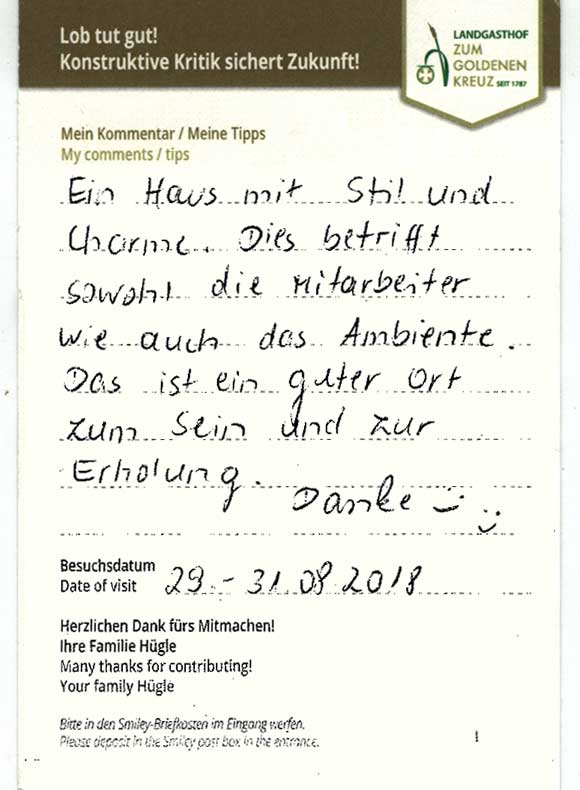 Lob tut gut!
Konstruktive Kritik sichert Zukunft!
LANDGASTHOF
ZUM
GOLDENEN
KREUZ SEIT 1787
Mein Kommentar / Meine Tipps
My comments / tips
Ein Haus mit Stil und
Charme. Dies betrifft
sowohl die Mitarbeiter
wie auch das Ambiente.
Das ist ein guter Ort
zum Sein und zur
Erholung.
Danke
Besuchsdatum
Date of visit
29. - 31.08 2018
Herzlichen Dank fürs Mitmachen!
Ihre Familie Hügle
Many thanks for contributing!
Your family Hügle
Bitte in den Smiley-Briefkasten im Eingang werfen.
Please deposit in the Smiley post box in the entrance.